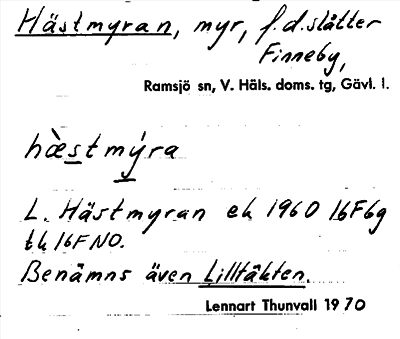 Hästmyran, myr, f.d. slåtter
Finneby,
Ramsjö sn, V. Häls. doms. tg, Gävl. l.
hæ̀stmýra
L. Hästmyran ek 1960 16F6g
tk 16F NO.
Benämns även Lilltäkten.
Lennart Thunvall 1970